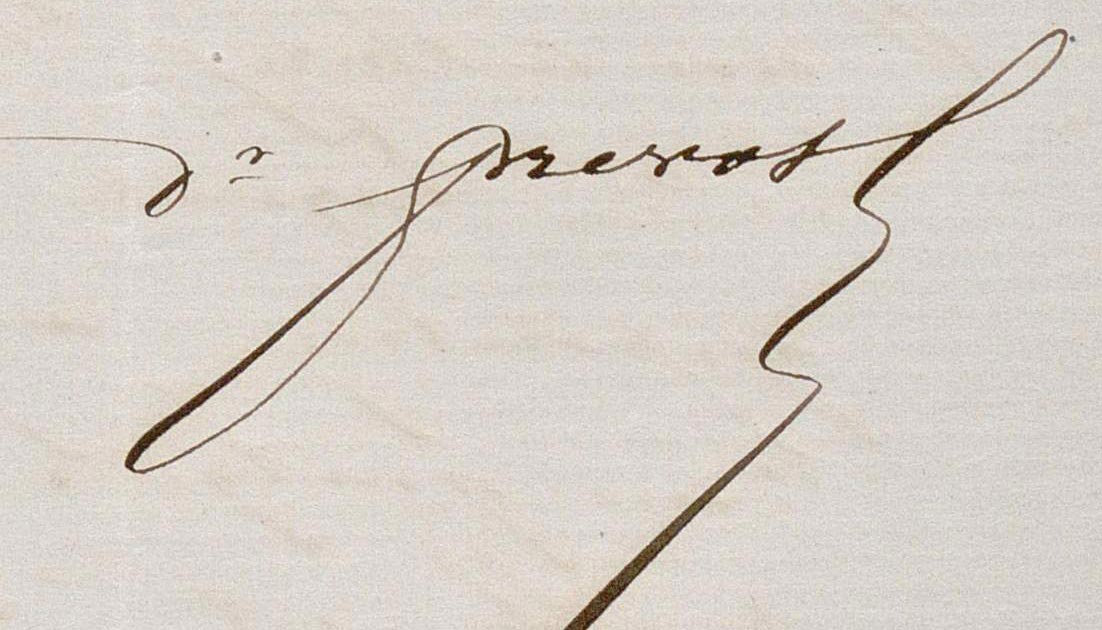 Dr Prevost